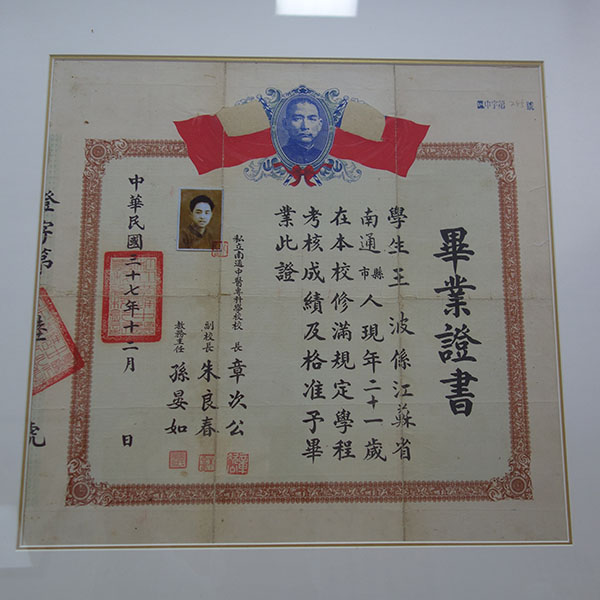 畢業證書
學生王波係江蘇省
南通縣市人現年二十一歲
在本校修滿規定學程
考核成績及格准予畢
業此證
私立南通中醫專科學校校長章次公
副校長朱良春
教務主任孫晏如
中華民國三十七年十二月 日
證字第 號